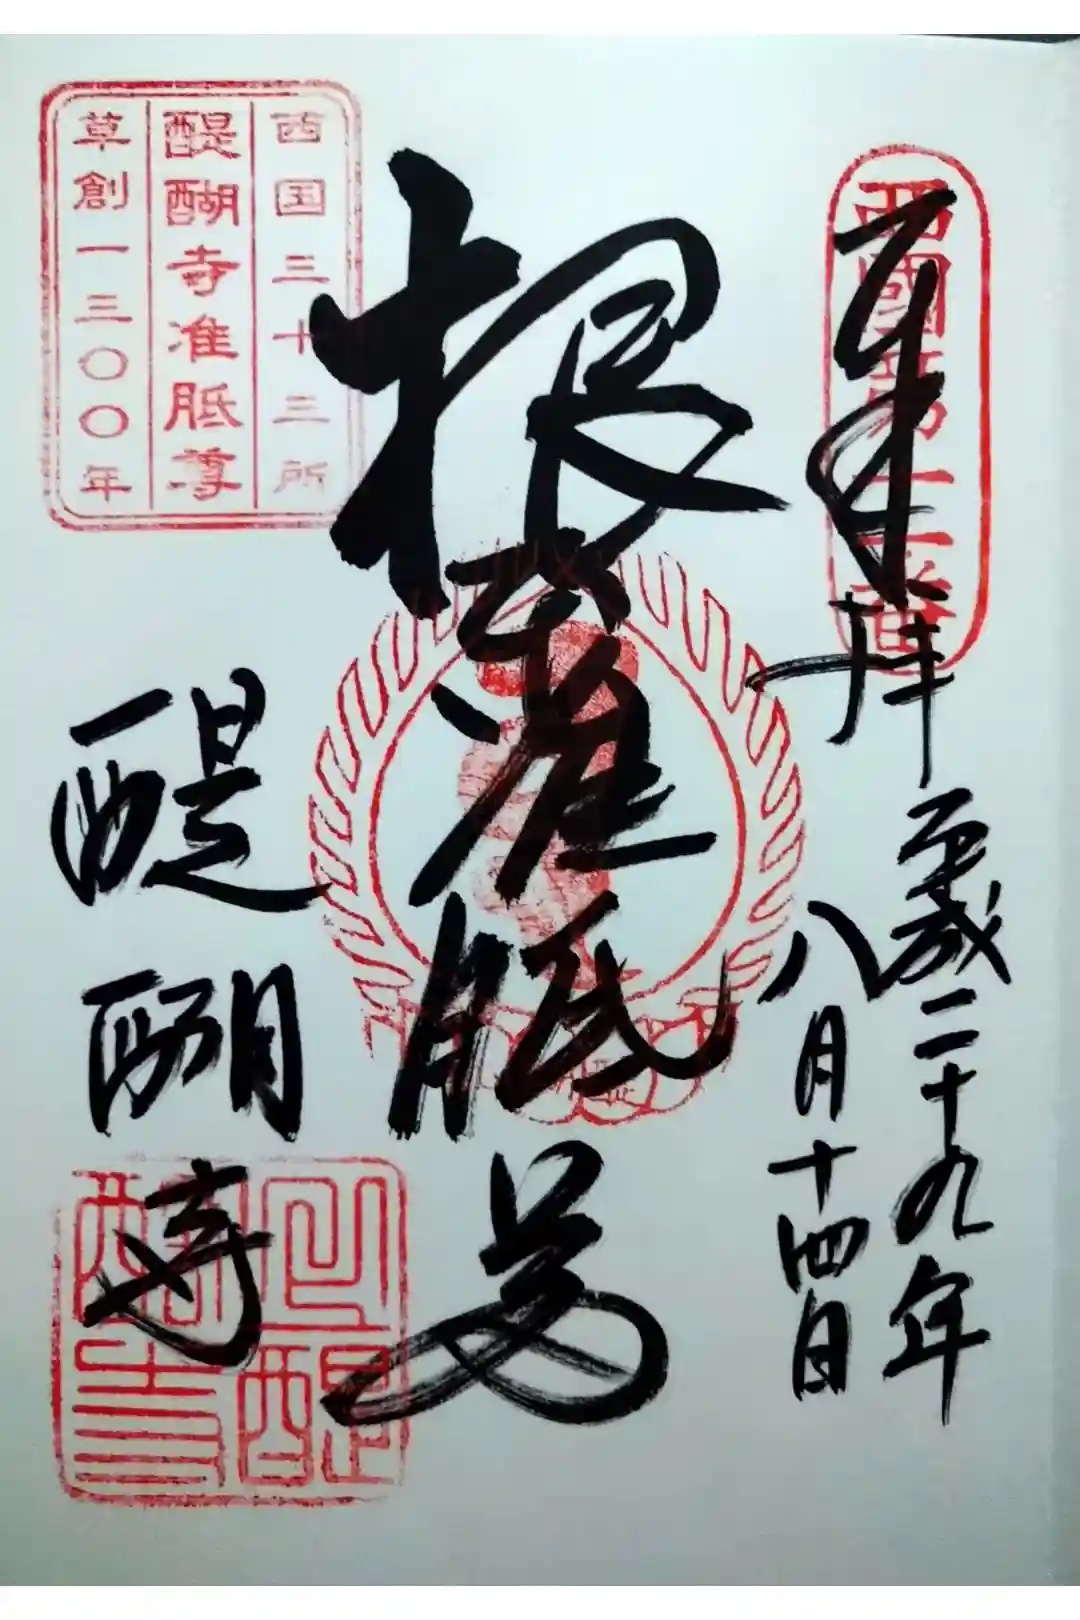 奉拝
平成二十九年
八月十四日
西國第十一番
根本准胝尊
醍醐寺
西国三十三所
醍醐寺准胝尊
草創一三〇〇年